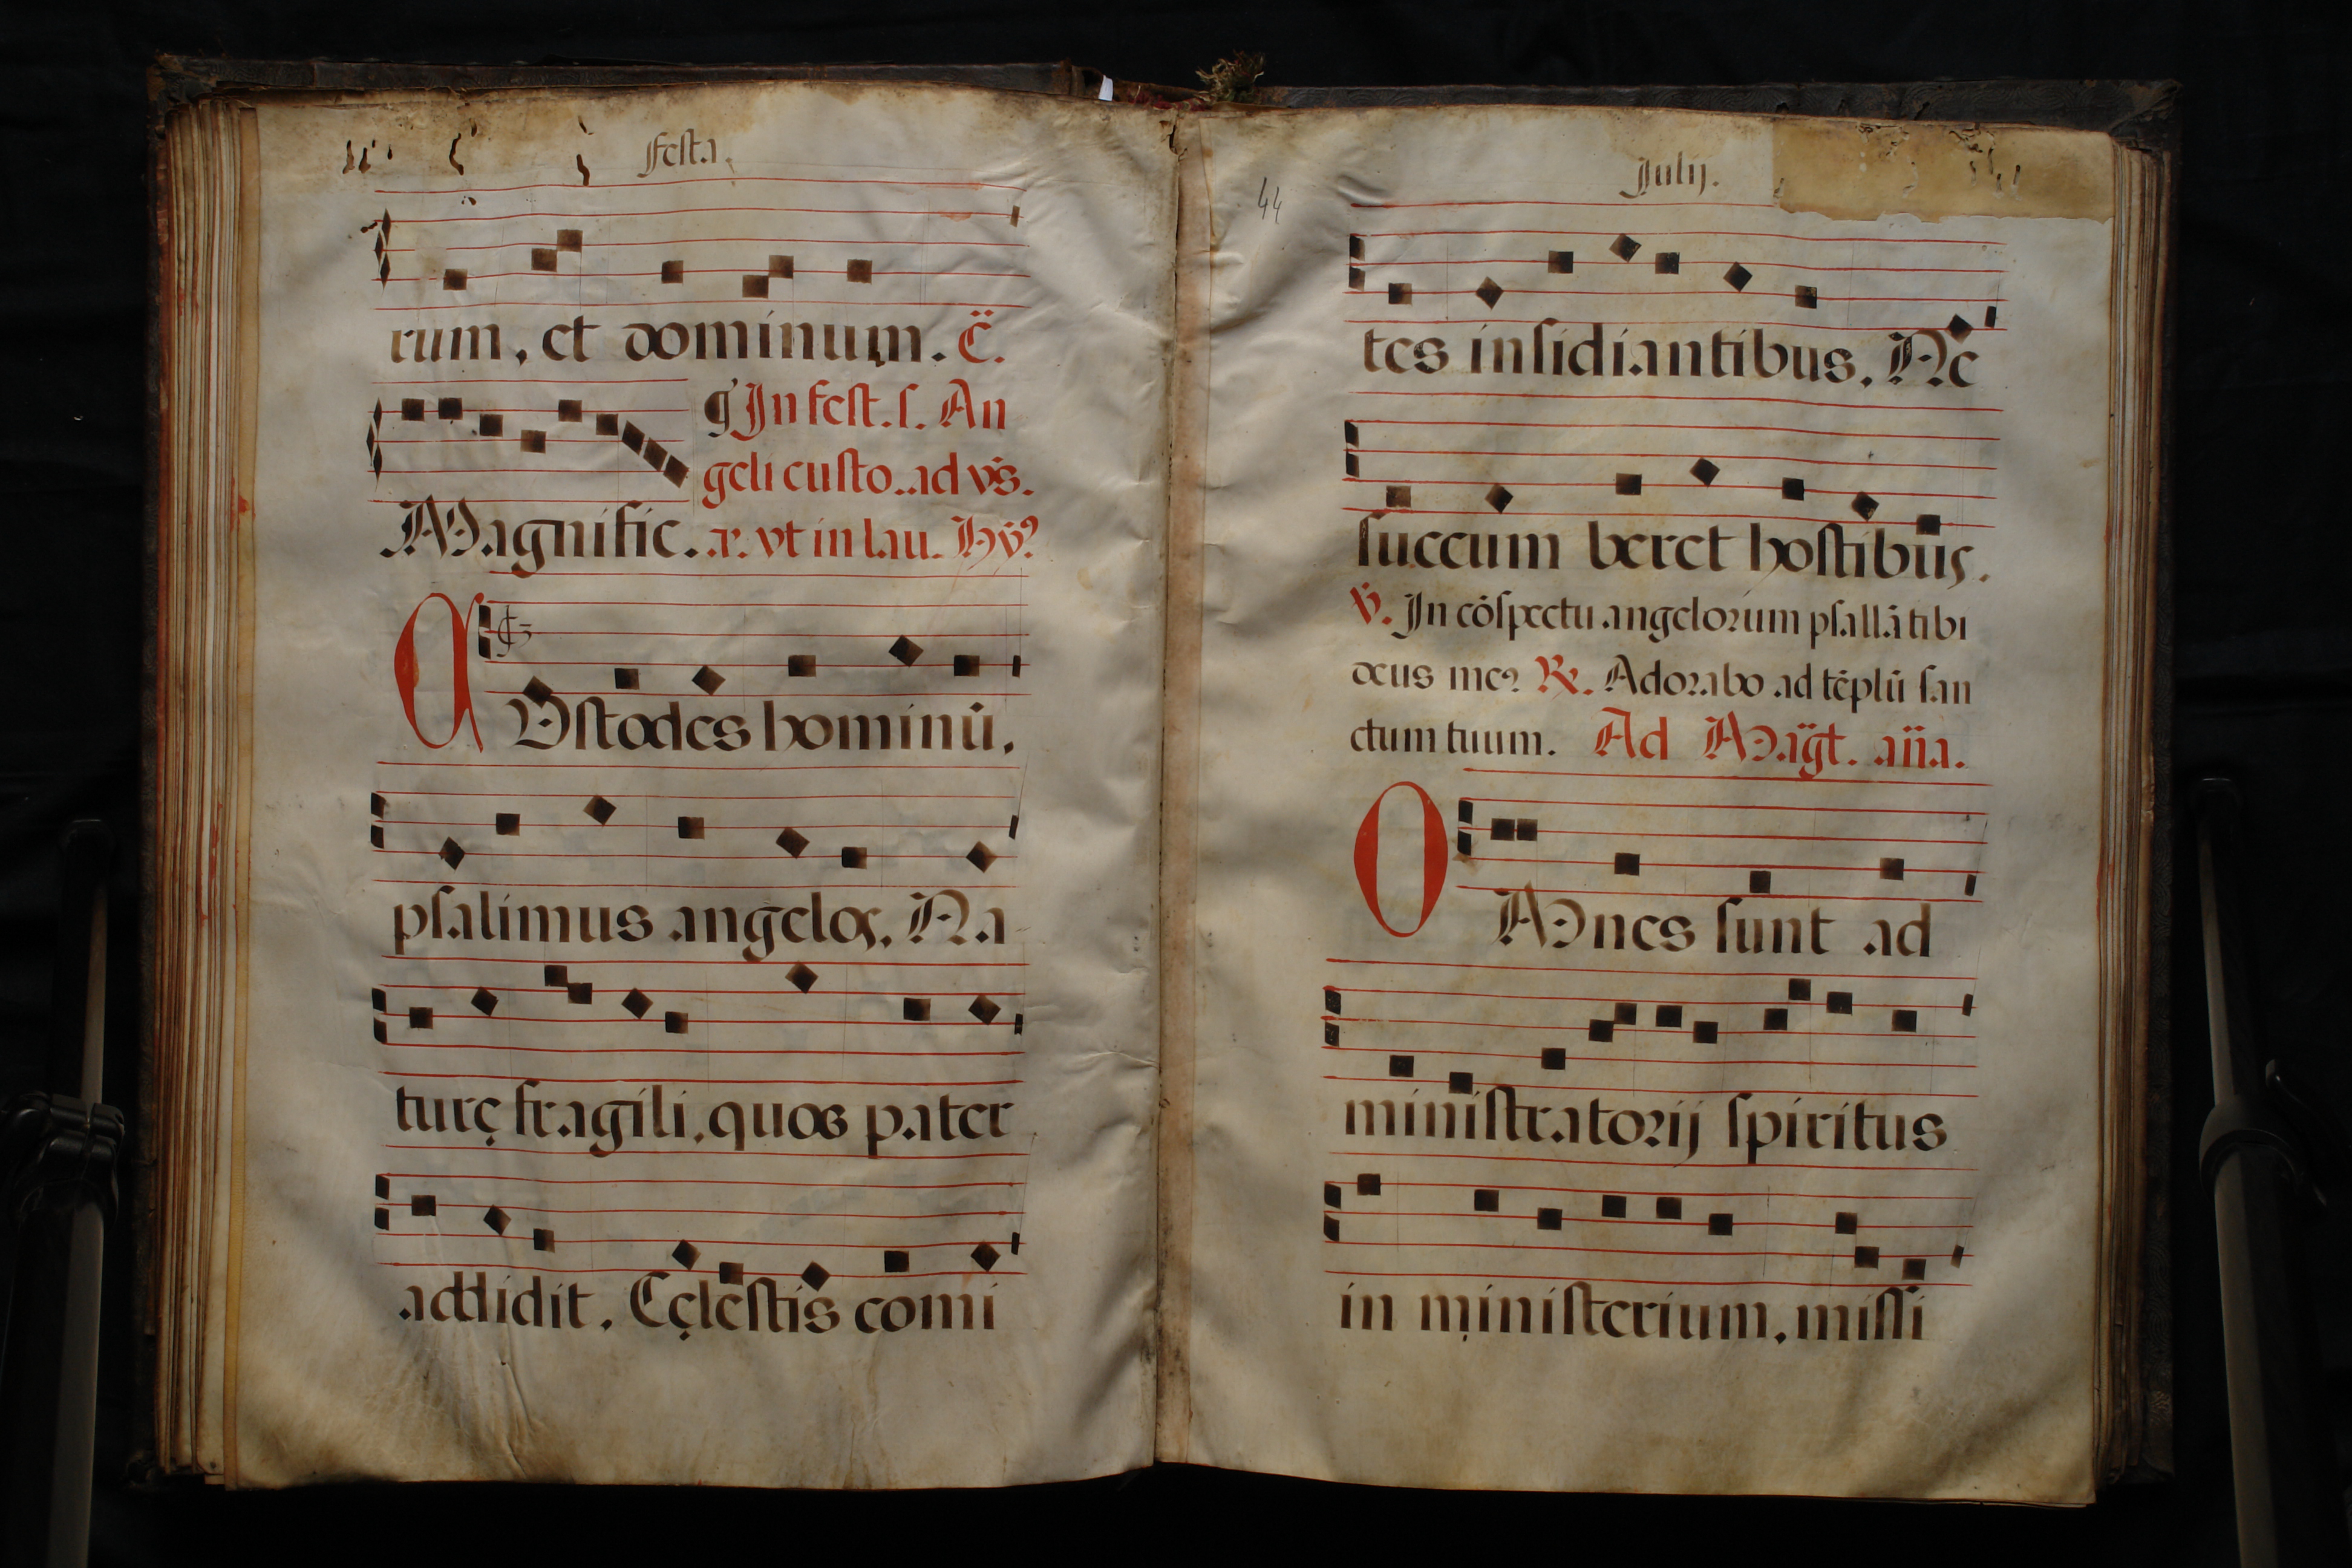 Festa.
rum, et dominum. C̈.
¶ In fest. s. An
geli custo. ad vs̄.
Magnific. a. vt in lau. Hỹ⁹
CVstodes hominū.
psalimus angelos. Na
turę fragili, quos pater
addidit. Cęlestis comi
44
Julij.
tes insidiantibus. Ne
succum beret hostibus.
℣. In cōspectu angelorum psallā tibi
deus me⁹ ℟. Adorabo ad tēplū san
ctum tuum. Ad Mag̃t. an̄a.
OMnes sunt ad
ministratorij spiritus
in ministerium, missi